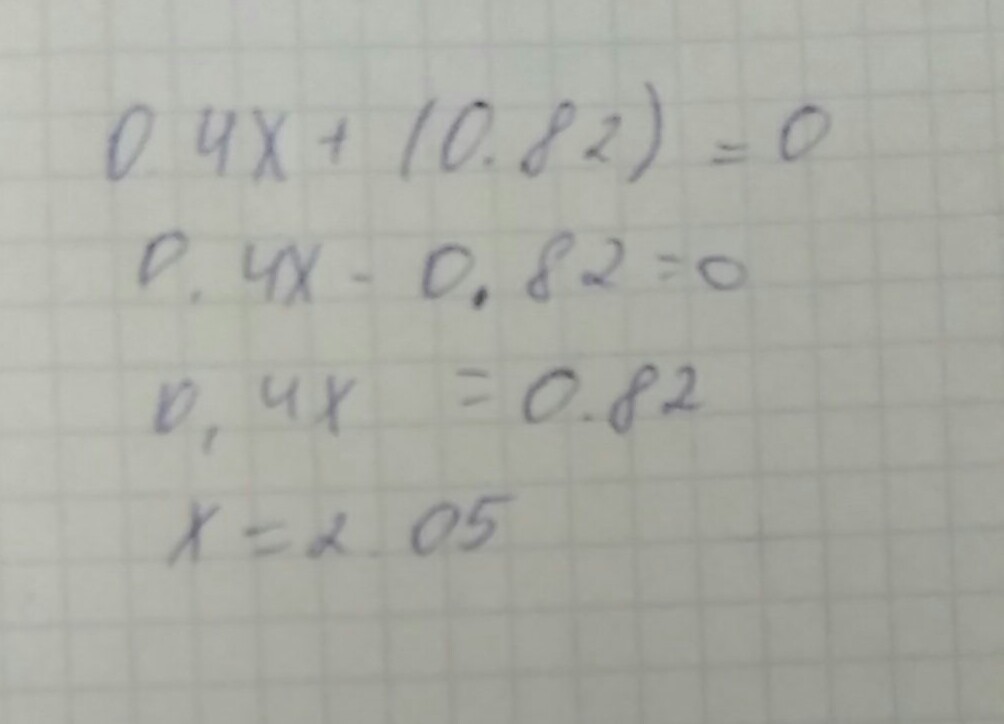 0.4x + (0.82) = 0
0.4x - 0.82 = 0
0,4x = 0.82
x = 2.05